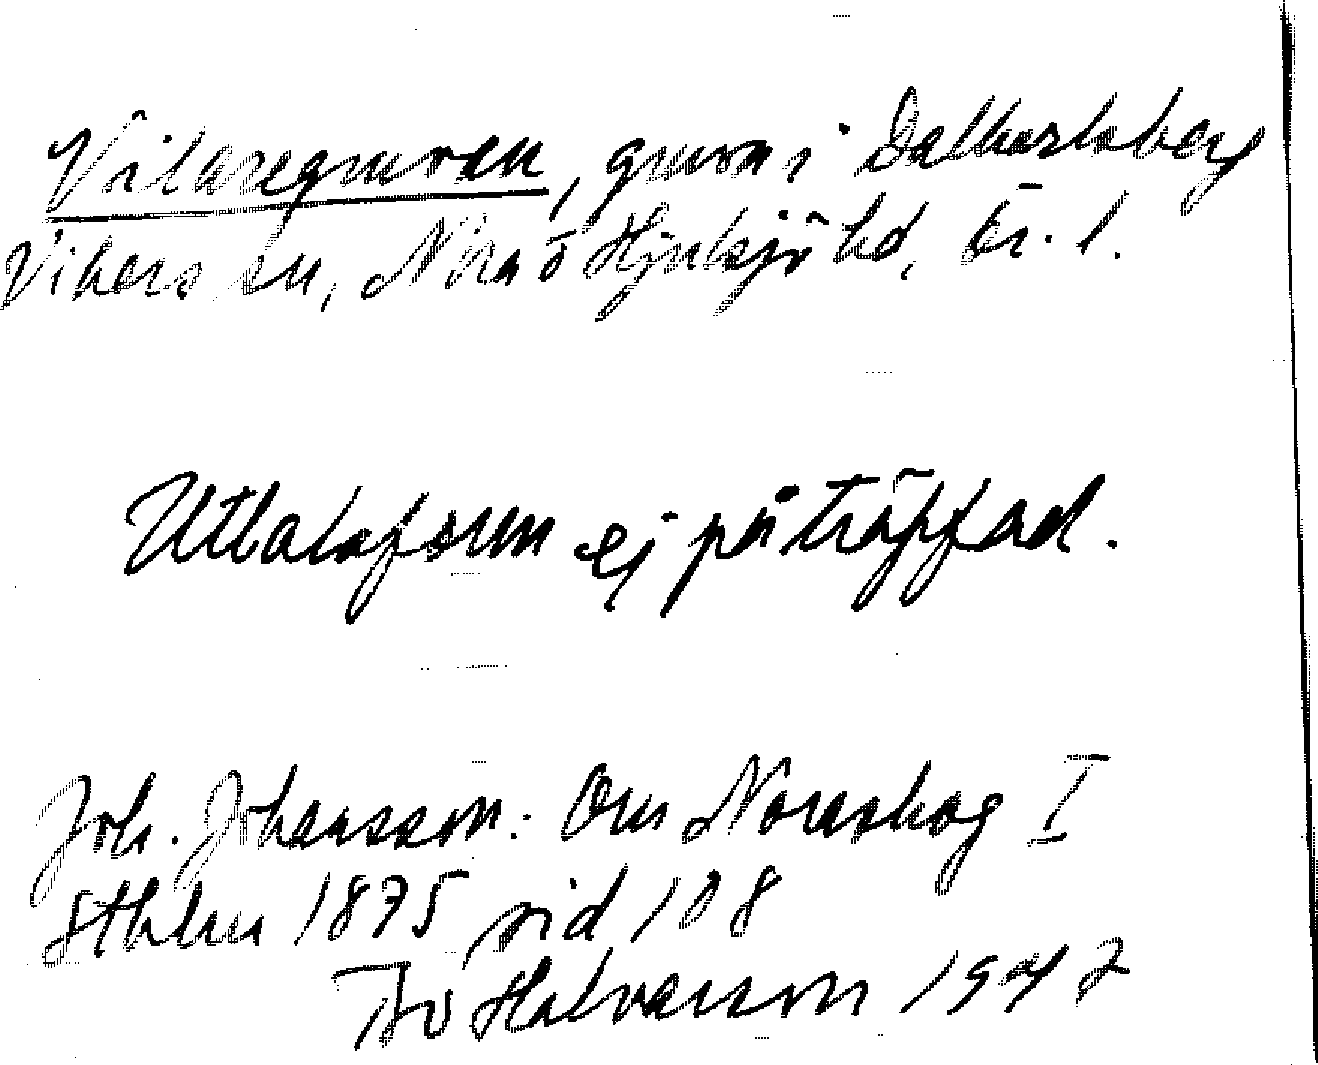 Vilaregruvan, gruva i Dalkarlsberg
Vikers sn, Nora o Hjulsjö bd, Ör. l.
Uttalsform ej påträffad.
Joh. Johansson: Om Noraskog I
Sthlm 1875 sid 108
Ivo Halvarsson 1947